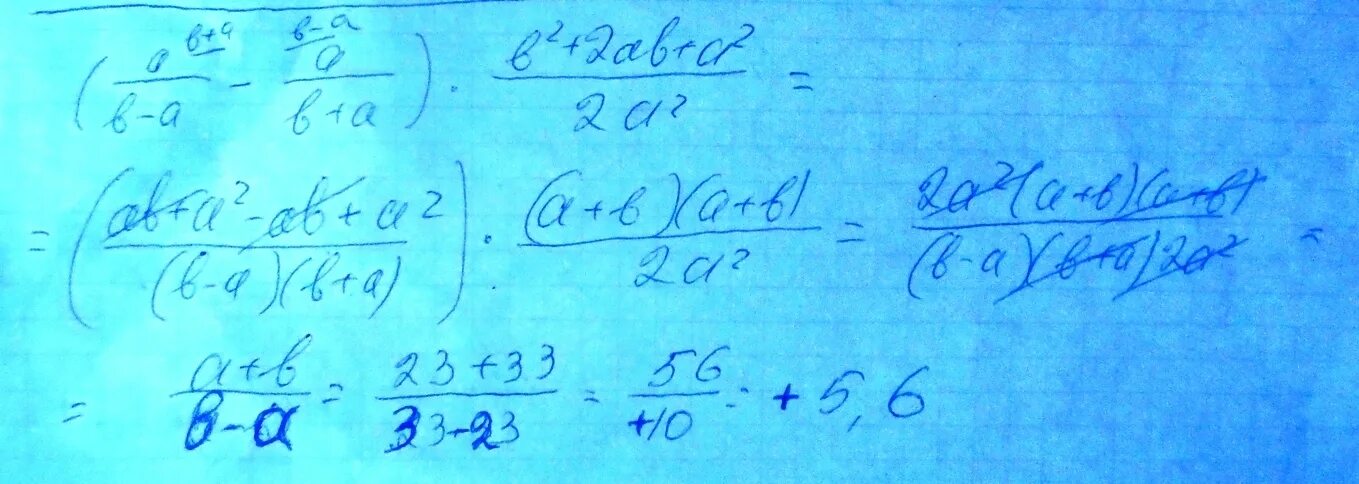 (a^{b+a}/(b-a) - a^{b-a}/(b+a)) · (b²+2ab+a²)/(2a²) =
= ((ab+a²-ab+a²)/((b-a)(b+a))) · ((a+b)(a+b))/(2a²) = (2a²(a+b)(a+b))/((b-a)(b+a)2a²) =
= (a+b)/(b-a) = (23+33)/(33-23) = 56/+10 = +5,6